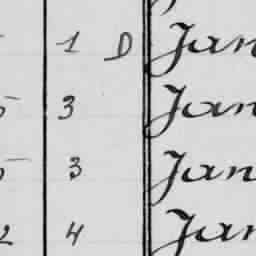 1 D Jan
5 3 Jan
5 3 Jan
2 4 Jan